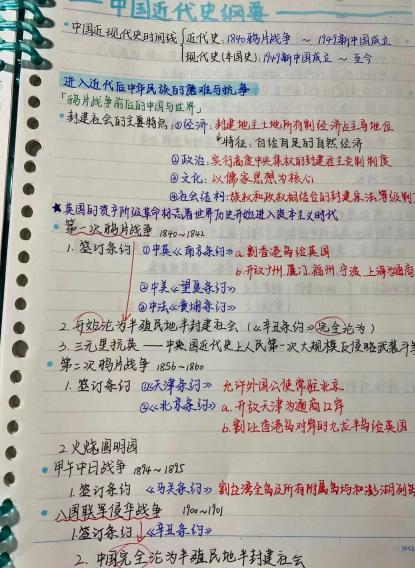 中国近代史纲要
中国近现代史时间线 近代史:1840鸦片战争 ~ 1949新中国成立
现代史(本国史):1949新中国成立 ~ 至今
进入近代后中华民族的磨难与抗争
「鸦片战争前后的中国与世界」
·封建社会的主要特点:①经济:封建地主土地所有制经济占主导地位
*特征:自给自足的自然经济
②政治:实行高度中央集权的封建君主专制制度
③文化:以儒家思想为核心
④社会结构:族权和政权相结合的封建宗法等级制
★英国的资产阶级革命标志着世界历史开始进入资本主义时代
·第一次鸦片战争 1840~1842
1.签订条约 ①中英《南京条约》a.割香港岛给英国
b.开放广州,厦门,福州,宁波,上海为通商
②中美《望厦条约》
③中法《黄埔条约》
2.开始沦为半殖民地半封建社会(《辛丑条约》完全沦为)
3.三元里抗英——中国近代史上人民第一次大规模反侵略武装斗
·第二次鸦片战争 1856~1860
1.签订条约 ①《天津条约》允许外国公使常驻北京
②《北京条约》a.开放天津为通商口岸
b.割让香港岛对岸的九龙半岛给英国
2.火烧圆明园
·甲午中日战争 1894~1895
1.签订条约 《马关条约》割台湾全岛及所有附属岛屿和澎湖列
·八国联军侵华战争 1900~1901
1.签订条约 《辛丑条约》
2.中国完全沦为半殖民地半封建社会